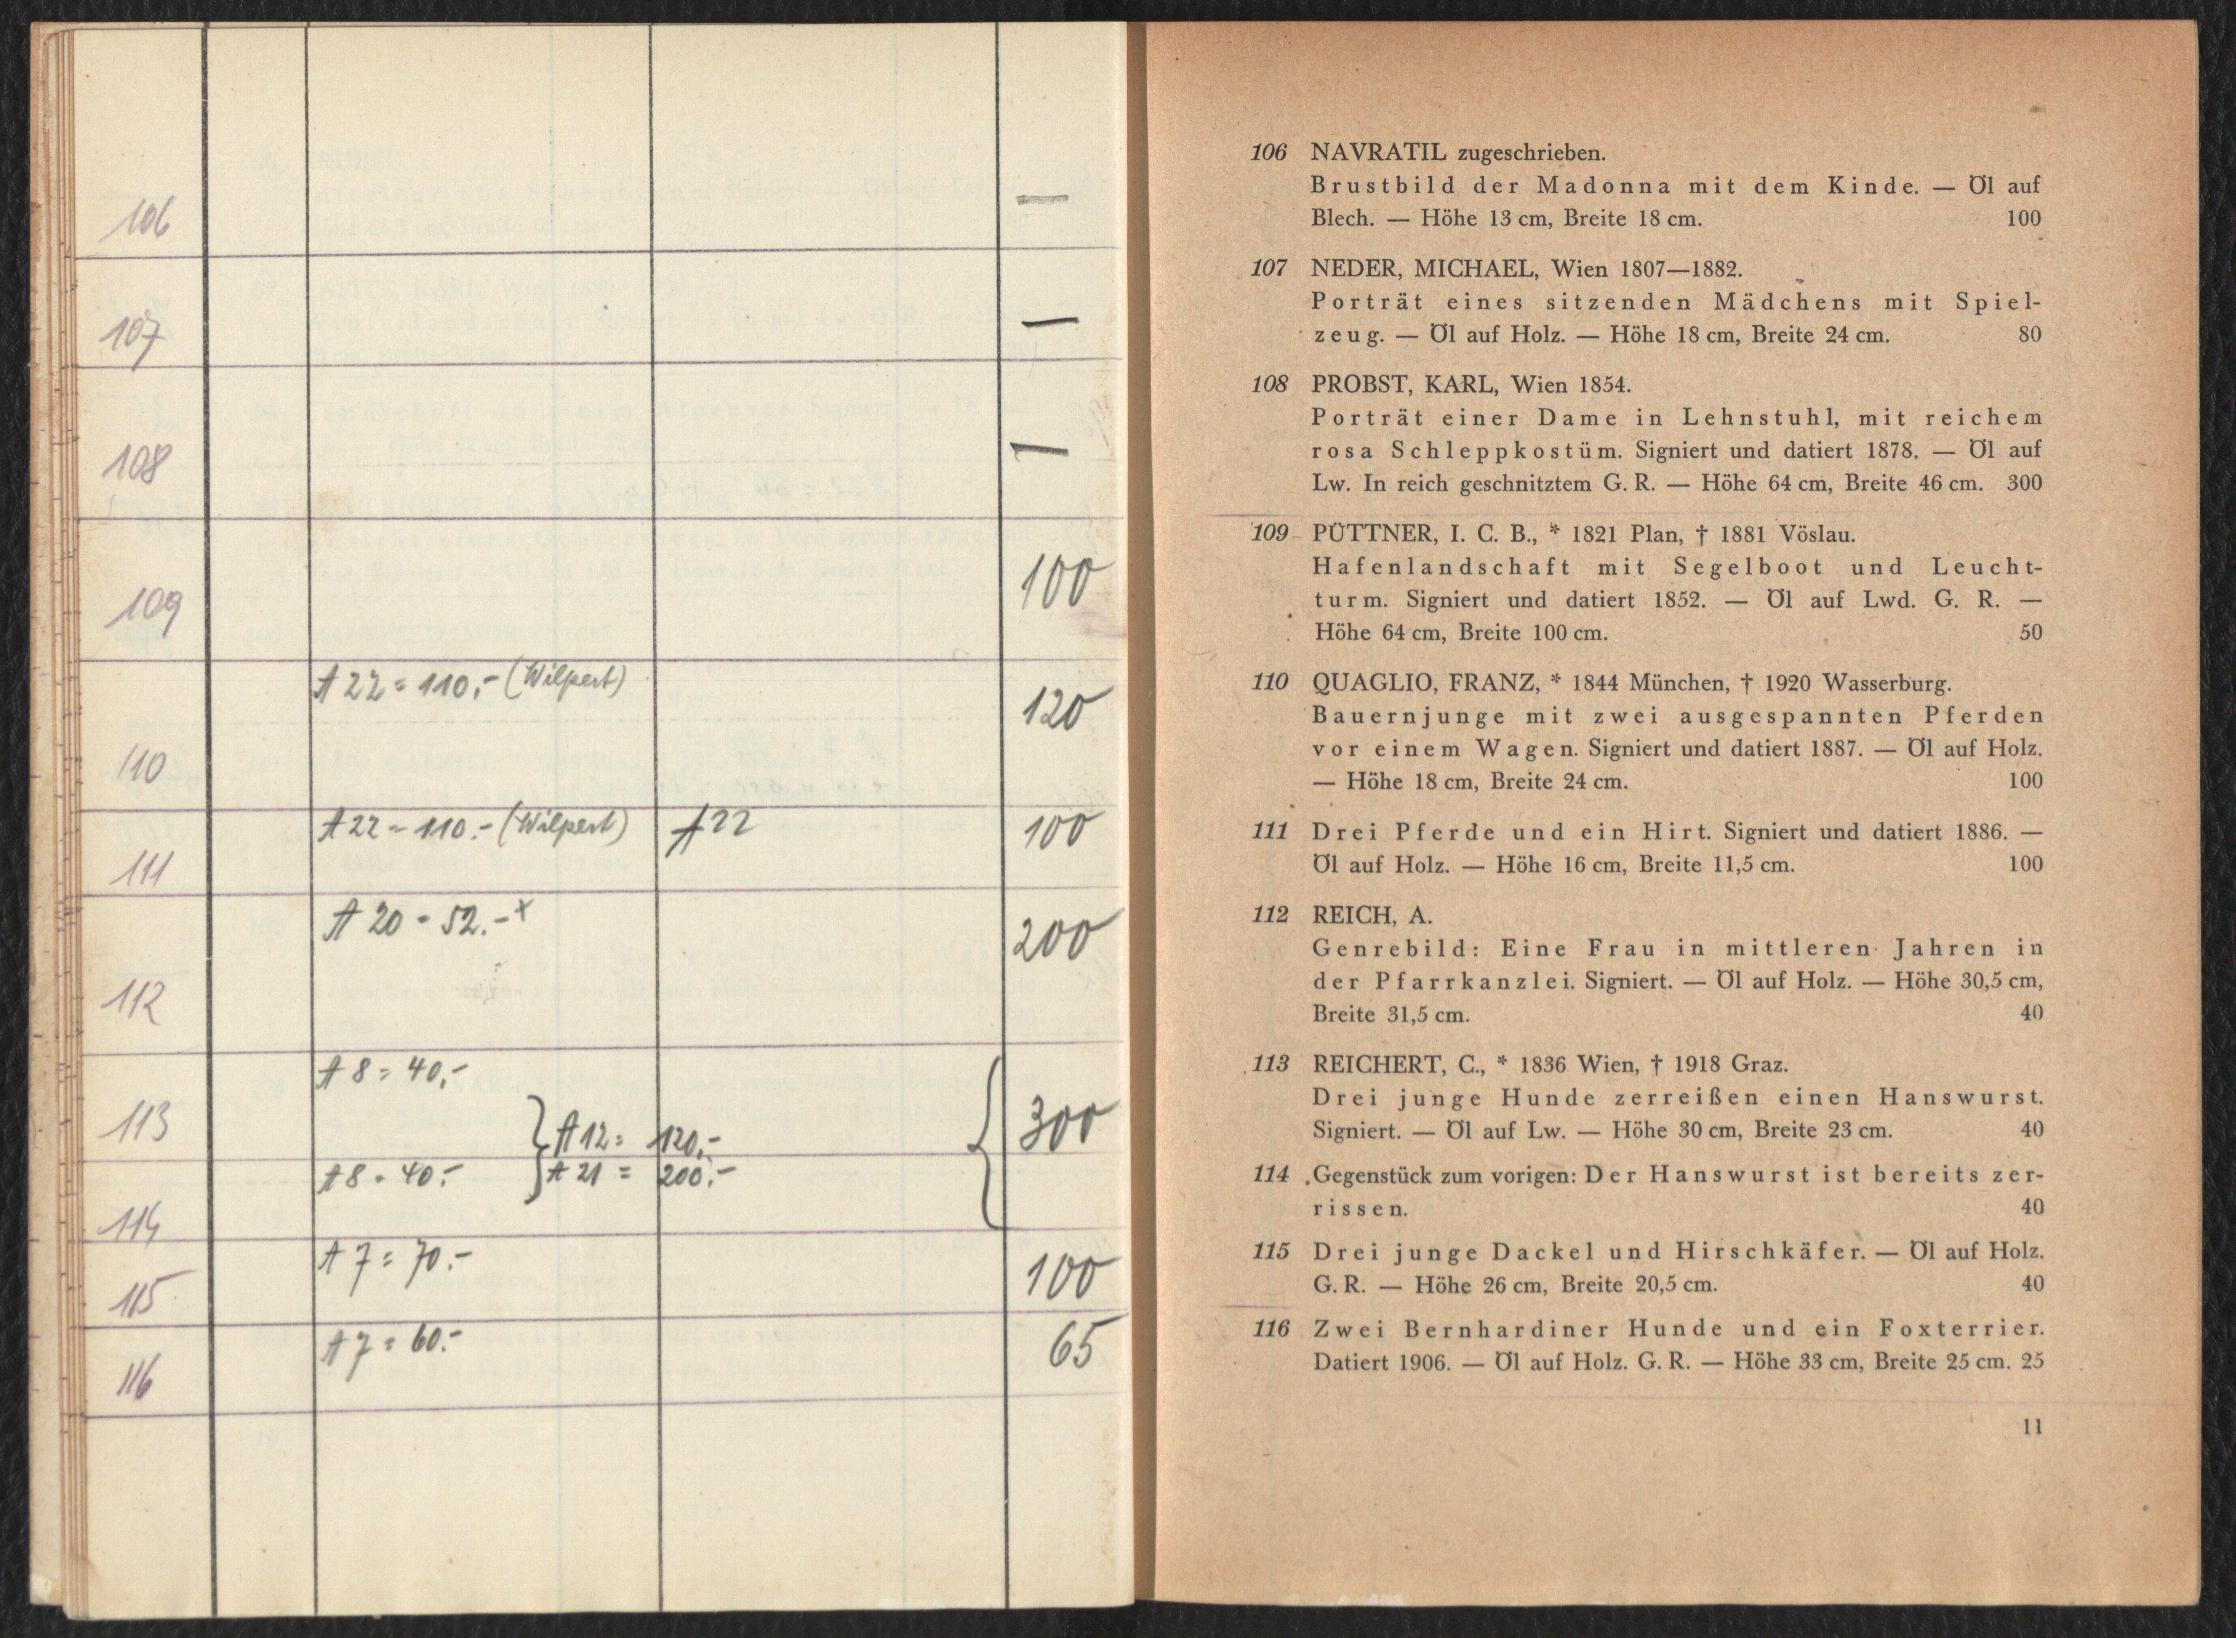 106 —
107 —
108 —
109 100
A 22 = 110,- (Wilpert)
110 120
A 22 - 110.- (Wilpert) A 22
111 100
A 20 - 52.- x
112 200
A 8 = 40,-
113 300
A 12 = 120,-
A 8 = 40.- A 21 = 200.-
114
A 7 = 70.-
115 100
A 7 = 60.-
116 65
106 NAVRATIL zugeschrieben.
Brustbild der Madonna mit dem Kinde. — Öl auf
Blech. — Höhe 13 cm, Breite 18 cm. 100
107 NEDER, MICHAEL, Wien 1807—1882.
Porträt eines sitzenden Mädchens mit Spiel-
zeug. — Öl auf Holz. — Höhe 18 cm, Breite 24 cm. 80
108 PROBST, KARL, Wien 1854.
Porträt einer Dame in Lehnstuhl, mit reichem
rosa Schleppkostüm. Signiert und datiert 1878. — Öl auf
Lw. In reich geschnitztem G. R. — Höhe 64 cm, Breite 46 cm. 300
109 PÜTTNER, I. C. B., * 1821 Plan, † 1881 Vöslau.
Hafenlandschaft mit Segelboot und Leucht-
turm. Signiert und datiert 1852. — Öl auf Lwd. G. R. —
Höhe 64 cm, Breite 100 cm. 50
110 QUAGLIO, FRANZ, * 1844 München, † 1920 Wasserburg.
Bauernjunge mit zwei ausgespannten Pferden
vor einem Wagen. Signiert und datiert 1887. — Öl auf Holz.
— Höhe 18 cm, Breite 24 cm. 100
111 Drei Pferde und ein Hirt. Signiert und datiert 1886. —
Öl auf Holz. — Höhe 16 cm, Breite 11,5 cm. 100
112 REICH, A.
Genrebild: Eine Frau in mittleren Jahren in
der Pfarrkanzlei. Signiert. — Öl auf Holz. — Höhe 30,5 cm,
Breite 31,5 cm. 40
113 REICHERT, C., * 1836 Wien, † 1918 Graz.
Drei junge Hunde zerreißen einen Hanswurst.
Signiert. — Öl auf Lw. — Höhe 30 cm, Breite 23 cm. 40
114 Gegenstück zum vorigen: Der Hanswurst ist bereits zer-
rissen. 40
115 Drei junge Dackel und Hirschkäfer. — Öl auf Holz.
G. R. — Höhe 26 cm, Breite 20,5 cm. 40
116 Zwei Bernhardiner Hunde und ein Foxterrier.
Datiert 1906. — Öl auf Holz. G. R. — Höhe 33 cm, Breite 25 cm. 25
11